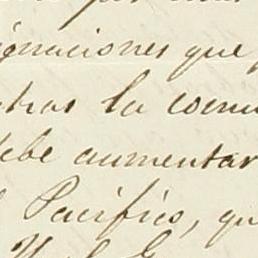 ignaciones que
tras la comu
debe aumentar
Pacífico, qu